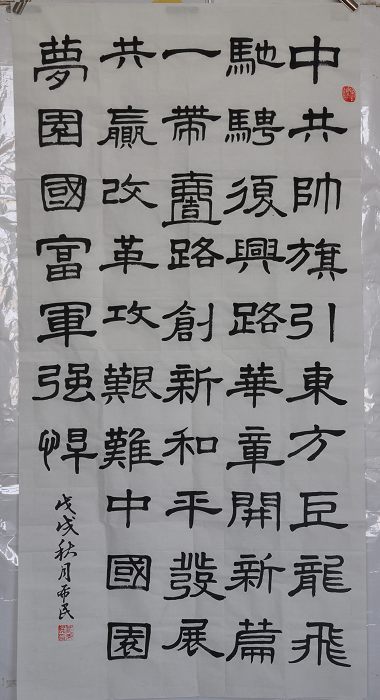 中共帥旗引東方巨龍飛
馳騁復興路華章開新篇
一帶壹路創新和平發展
共贏改革攻艱難中國園
夢園國富軍强悍
戊戌秋月